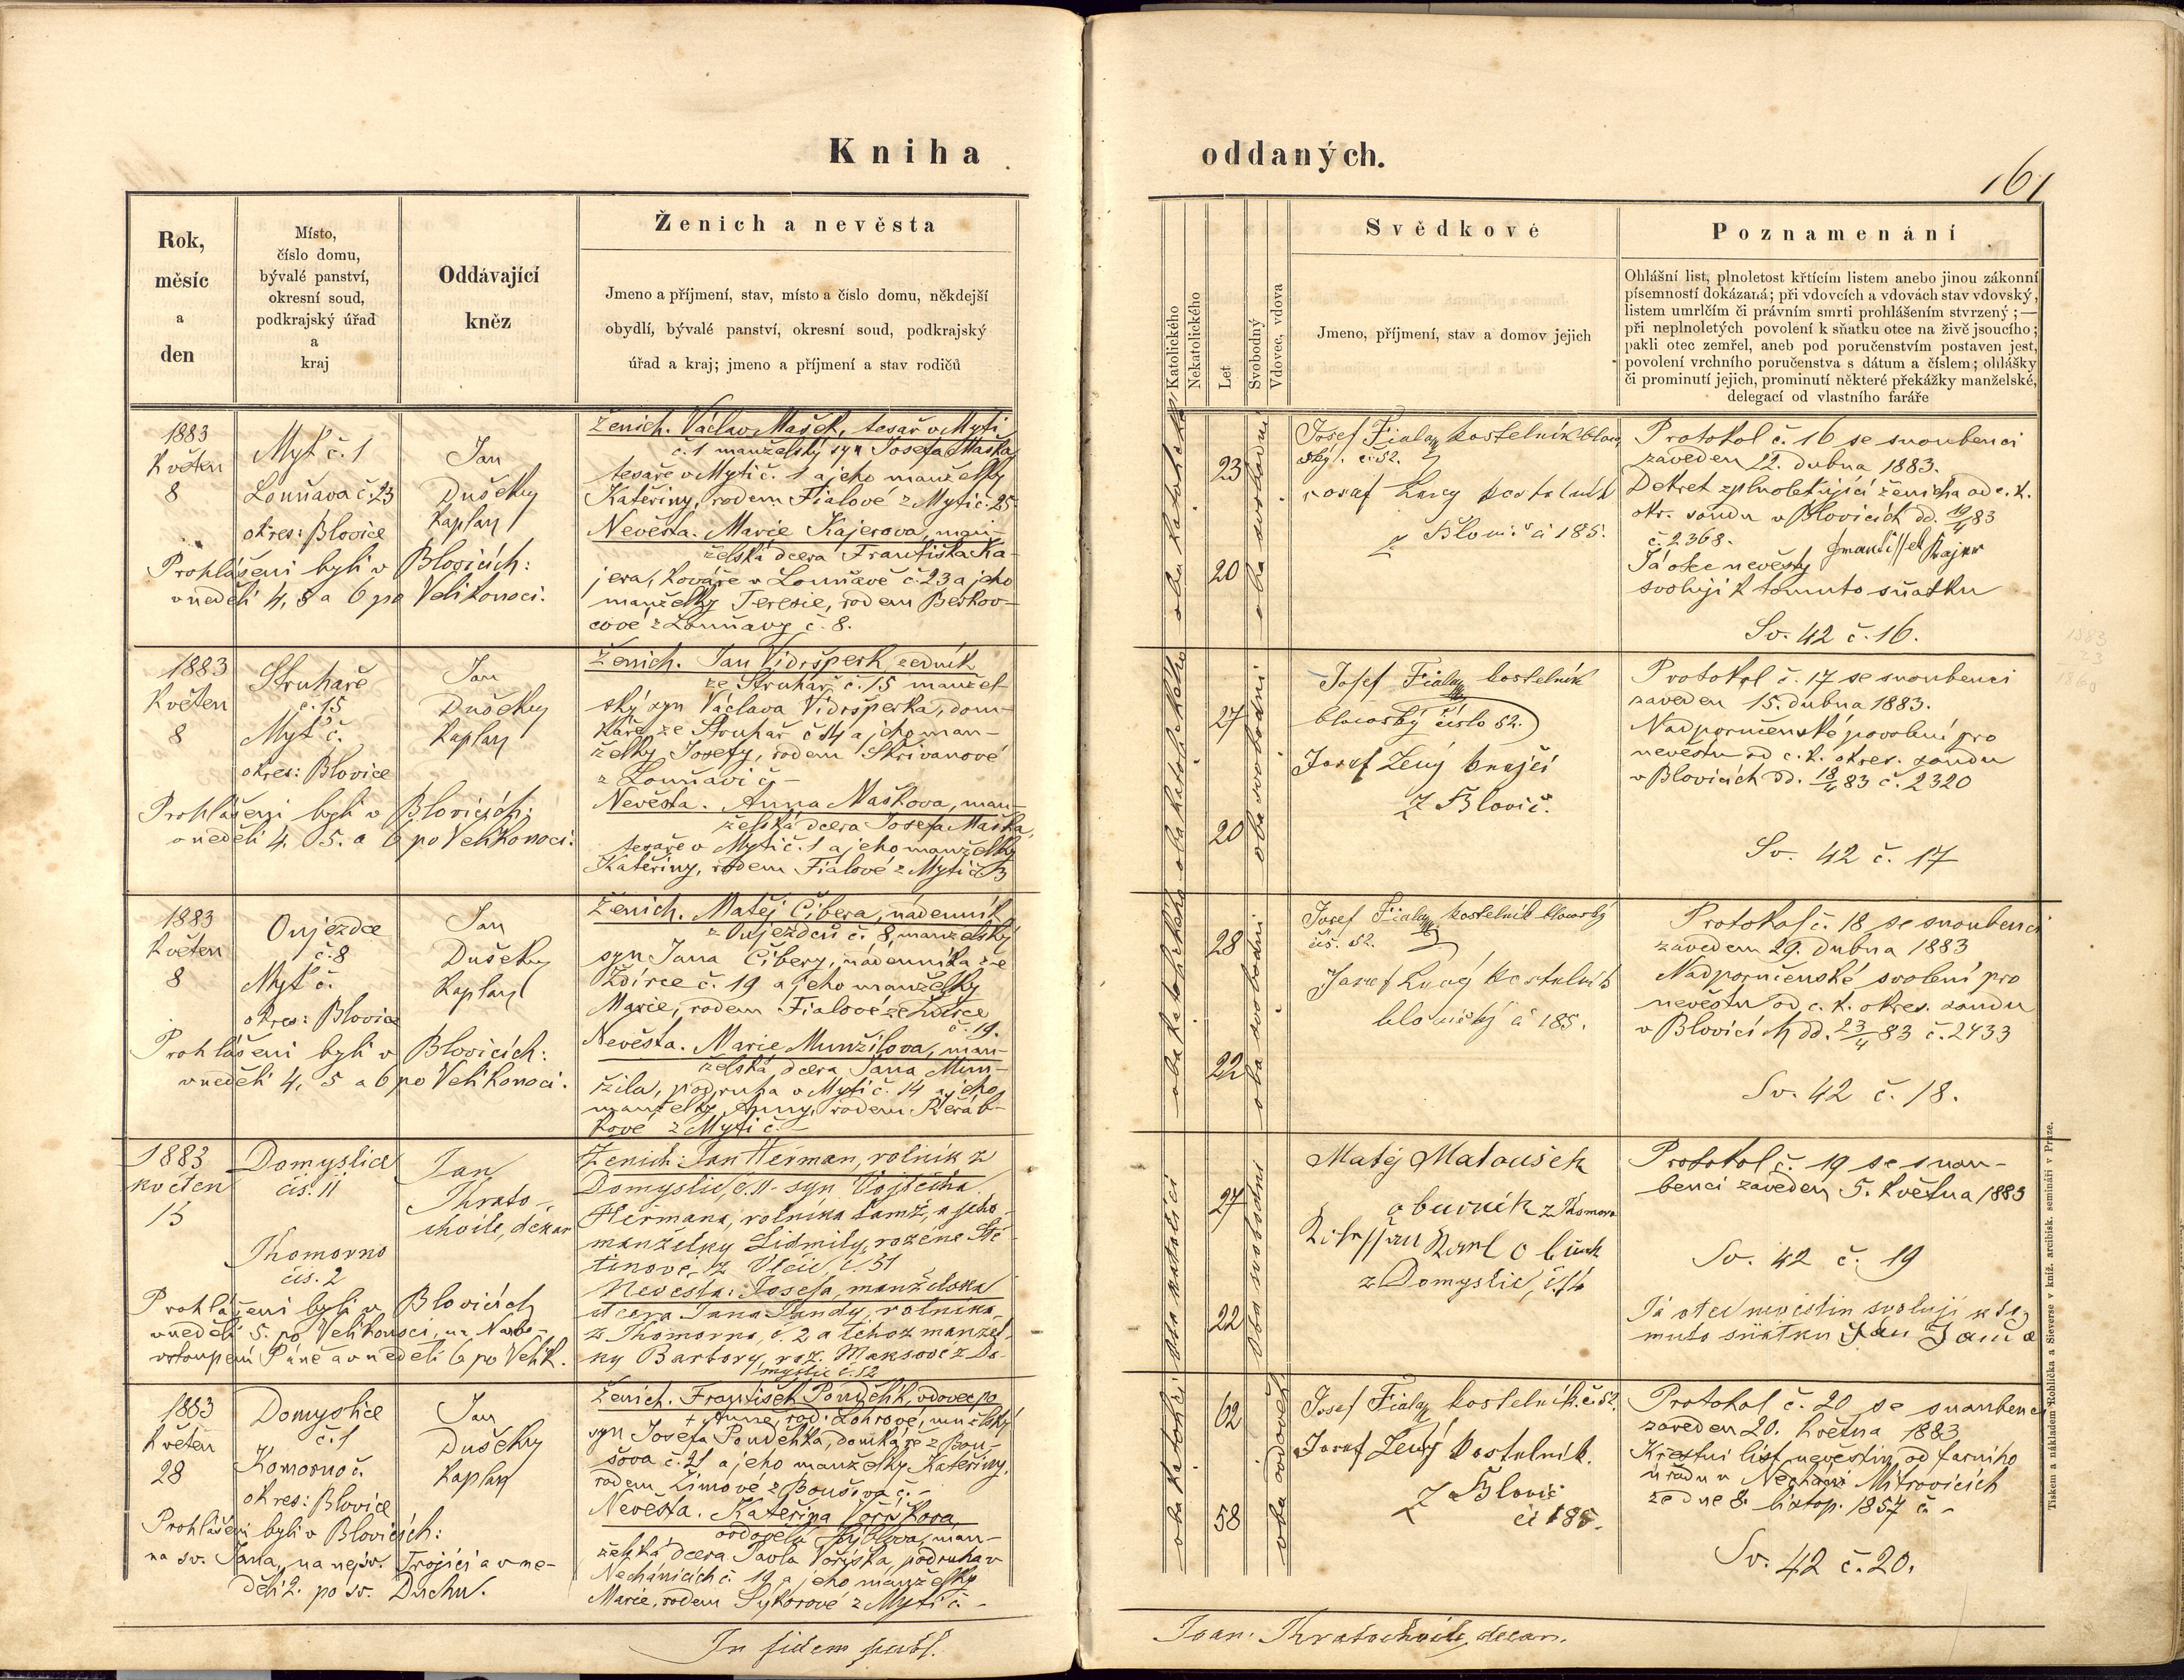 Kniha
Rok,
měsíc
a
den
Místo,
číslo domu,
bývalé panství,
okresní soud,
podkrajský úřad
a
kraj
Oddávající
kněz
Ženich a nevěsta
Jmeno a příjmení, stav, místo a číslo domu, někdejší
obydlí, bývalé panství, okresní soud, podkrajský
úřad a kraj; jmeno a příjmení a stav rodičů
1883
Květen
8
Myt č. 1
Louňava č. 23
okres: Blovice
Jan
Dušeky
Kaplan
Prohlášeni byli v Blovicích:
v neděli 4, 5 a 6 po Velikonoci.
Ženich. Václav Mašek, tesař v Myti
č. 1 manželský syn Josefa Maška
tesaře v Myti č. 1 a jeho manželky
Kateřiny, rodem Fialové z Myti č. 25
Nevěsta. Marie Kajerova, man-
želská dcera Františka Ka-
jera, kováře v Louňavě č. 23 a jeho
manželky Teresie, rodem Berkov-
cové z Louňavy č. 8.
1883
Květen
8
Struhaře
č. 15
Myt č.
okres: Blovice
Jan
Dušeky
Kaplan
Prohlášeni byli v Blovicích:
v neděli 4. 5. a 6 po Velikonoci:
Ženich. Jan Vidršperk, zedník
ze Struhař č. 15 manžel-
ský syn Václava Vidršperka, dom-
káře ze Struhař č 14 a jeho man-
želky Josefy, rodem Skřivanové
z Louňavi č. -
Nevěsta. Anna Maškova, man-
želská dcera Josefa Maška,
tesaře v Myti č. 1 a jeho manželky
Kateřiny, rodem Fialové z Myti č.
1883
Květen
8
Oujezdce
č. 8
Myt č.
okres: Blovice
Jan
Dušeky
Kaplan
Prohlášeni byli v Blovicích:
v neděli 4, 5 a 6 po Velikonoci.
Ženich. Matěj Čibera, nádenník
z Oujezdců č. 8, manželský
syn Jana Čibery, nádenníka ze
Ždírce č. 19 a jeho manželky
Marie, rodem Fialové ze Ždírce
č. 19.
Nevěsta. Marie Munzilova, man-
želská dcera Jana Mun-
zila, podruha v Myti č. 14 a jeho
manželky Anny, rodem Řeřáb-
kové z Myti č. -
1883
květen
15
Domyslice
čis. 11
Thomorno
čis. 2
Jan
Khrato-
chvile, děkan
Prohlášeni byli v Blovicích
v neděli 5. po Velikonoci, na Nanbe-
vstoupení Páně a v neděli 6 po Velik.
Ženich: Jan Heřman, rolník z
Domyslic, č. 11 - syn Vojtěcha
Heřmana, rolníka tamž, a jeho
manželky Lidmily, rozéné Ště-
tinové, z Vlčic, č. 31
Nevěsta: Josefa, manželska
dcera Jana Jandy, rolníka
z Thomorna, č. 2 a téhož manžel-
ky Barbory, roz. Maksové z Do-
myslic č. 12
1883
Květen
28
Domyslice
č. 1
Komorno č.
okres: Blovice
Jan
Dušeky
Kaplan
Prohlášeni byli v Blovicích:
na sv. Jana, na nejsv. Trojici a v ne-
děli 2. po sv. Duchu.
Ženich. František Pouděhk, vdovec po
+ Anně, rod. Lohrové, manželský
syn Josefa Pouděhka, domkáře z Bou-
šova č. 21 a jeho manželky Kateřiny,
rodem Zímové z Boušova č. -
Nevěsta. Kateřina Voříškova
man-
želská dcera Pavla Voříška, podruha v
Nechánicích č. 19 a jeho manželky
Marie, rodem Sykorové z Myti č. -
In fidem
oddaných.
161
Katolického
Nekatolického
Let
Svobodný
Vdovec, vdova
Svědkové
Jmeno, příjmení, stav a domov jejich
Poznamenání
Ohlášní list, plnoletost křtícím listem anebo jinou zákonní
písemností dokázaná; při vdovcích a vdovách stav vdovský,
listem umrlčím či právním smrti prohlášením stvrzený; —
při neplnoletých povolení k sňatku otce na živě jsoucího;
pakli otec zemřel, aneb pod poručenstvím postaven jest,
povolení vrchního poručenstva s dátum a číslem; ohlášky
či prominutí jejich, prominutí některé překážky manželské,
delegací od vlastního faráře
oba katolické
23
20
oba svobodni
Josef Fiala kostelník blov
ský. č. 52.
Josef Levý kostelník
z Blovic č 185.
Protokol č. 16 se snoubenci
zaveden 22. dubna 1883.
Dekret zplnoletňující ženicha od c. k.
okr. soudu v Blovicích dd. 19/4 83
č. 2368.
František Kajer
Já otec nevěsty
svoluji k tomuto sňatku
Sv. 42 č. 16.
oba katolického
27
20
oba svobodni
Josef Fiala kostelník
blovský číslo 52.
Josef Levý krejčí
z Blovic.
Protokol č. 17 se snoubenci
zaveden 15. dubna 1883.
Nadporučenské povolení pro
nevěstu od c. k. okres. soudu
v Blovicích dd. 18/4 83 č. 2320
Sv. 42 č. 17
1883
23
1860
oba katolického
28
22
oba svobodni
Josef Fiala kostelník blovský
čis. 52.
Josef Levý kostelník
blovický č 185.
Protokol č. 18 se snoubenci
zaveden 29. dubna 1883
Nadporučenské svolení pro
nevěstu od c. k. okres. soudu
v Blovicích dd. 23/4 83 č. 2433
Sv. 42 č. 18.
oba katolíci
27
22
oba svobodni
Matěj Matoušek
obecník z Thomorn
Karl
z Domyslic,
Protokol č. 19 se snou-
benci zaveden 5. května 1883
Sv. 42 č. 19
Já otec nevěstin svoluji k to
muto sňatku Jan Janda
oba katolíci
62
58
oba vdovel
Josef Fiala kostelník č. 52.
Josef Levý kostelník.
z Blovic
či 185.
Protokol č. 20 se snoubenci
zaveden 20. Května 1883
Krestní list nevěstin od farního
úřadu v Nechani Mitrovicích
ze dne 8. listop. 1857 č. -
Sv. 42 č. 20.
Tiskem a nákladem Rohlíčka a Sieverse v kníž. arcibisk. semináři v Praze.
Joan. Khratochvile, decan.